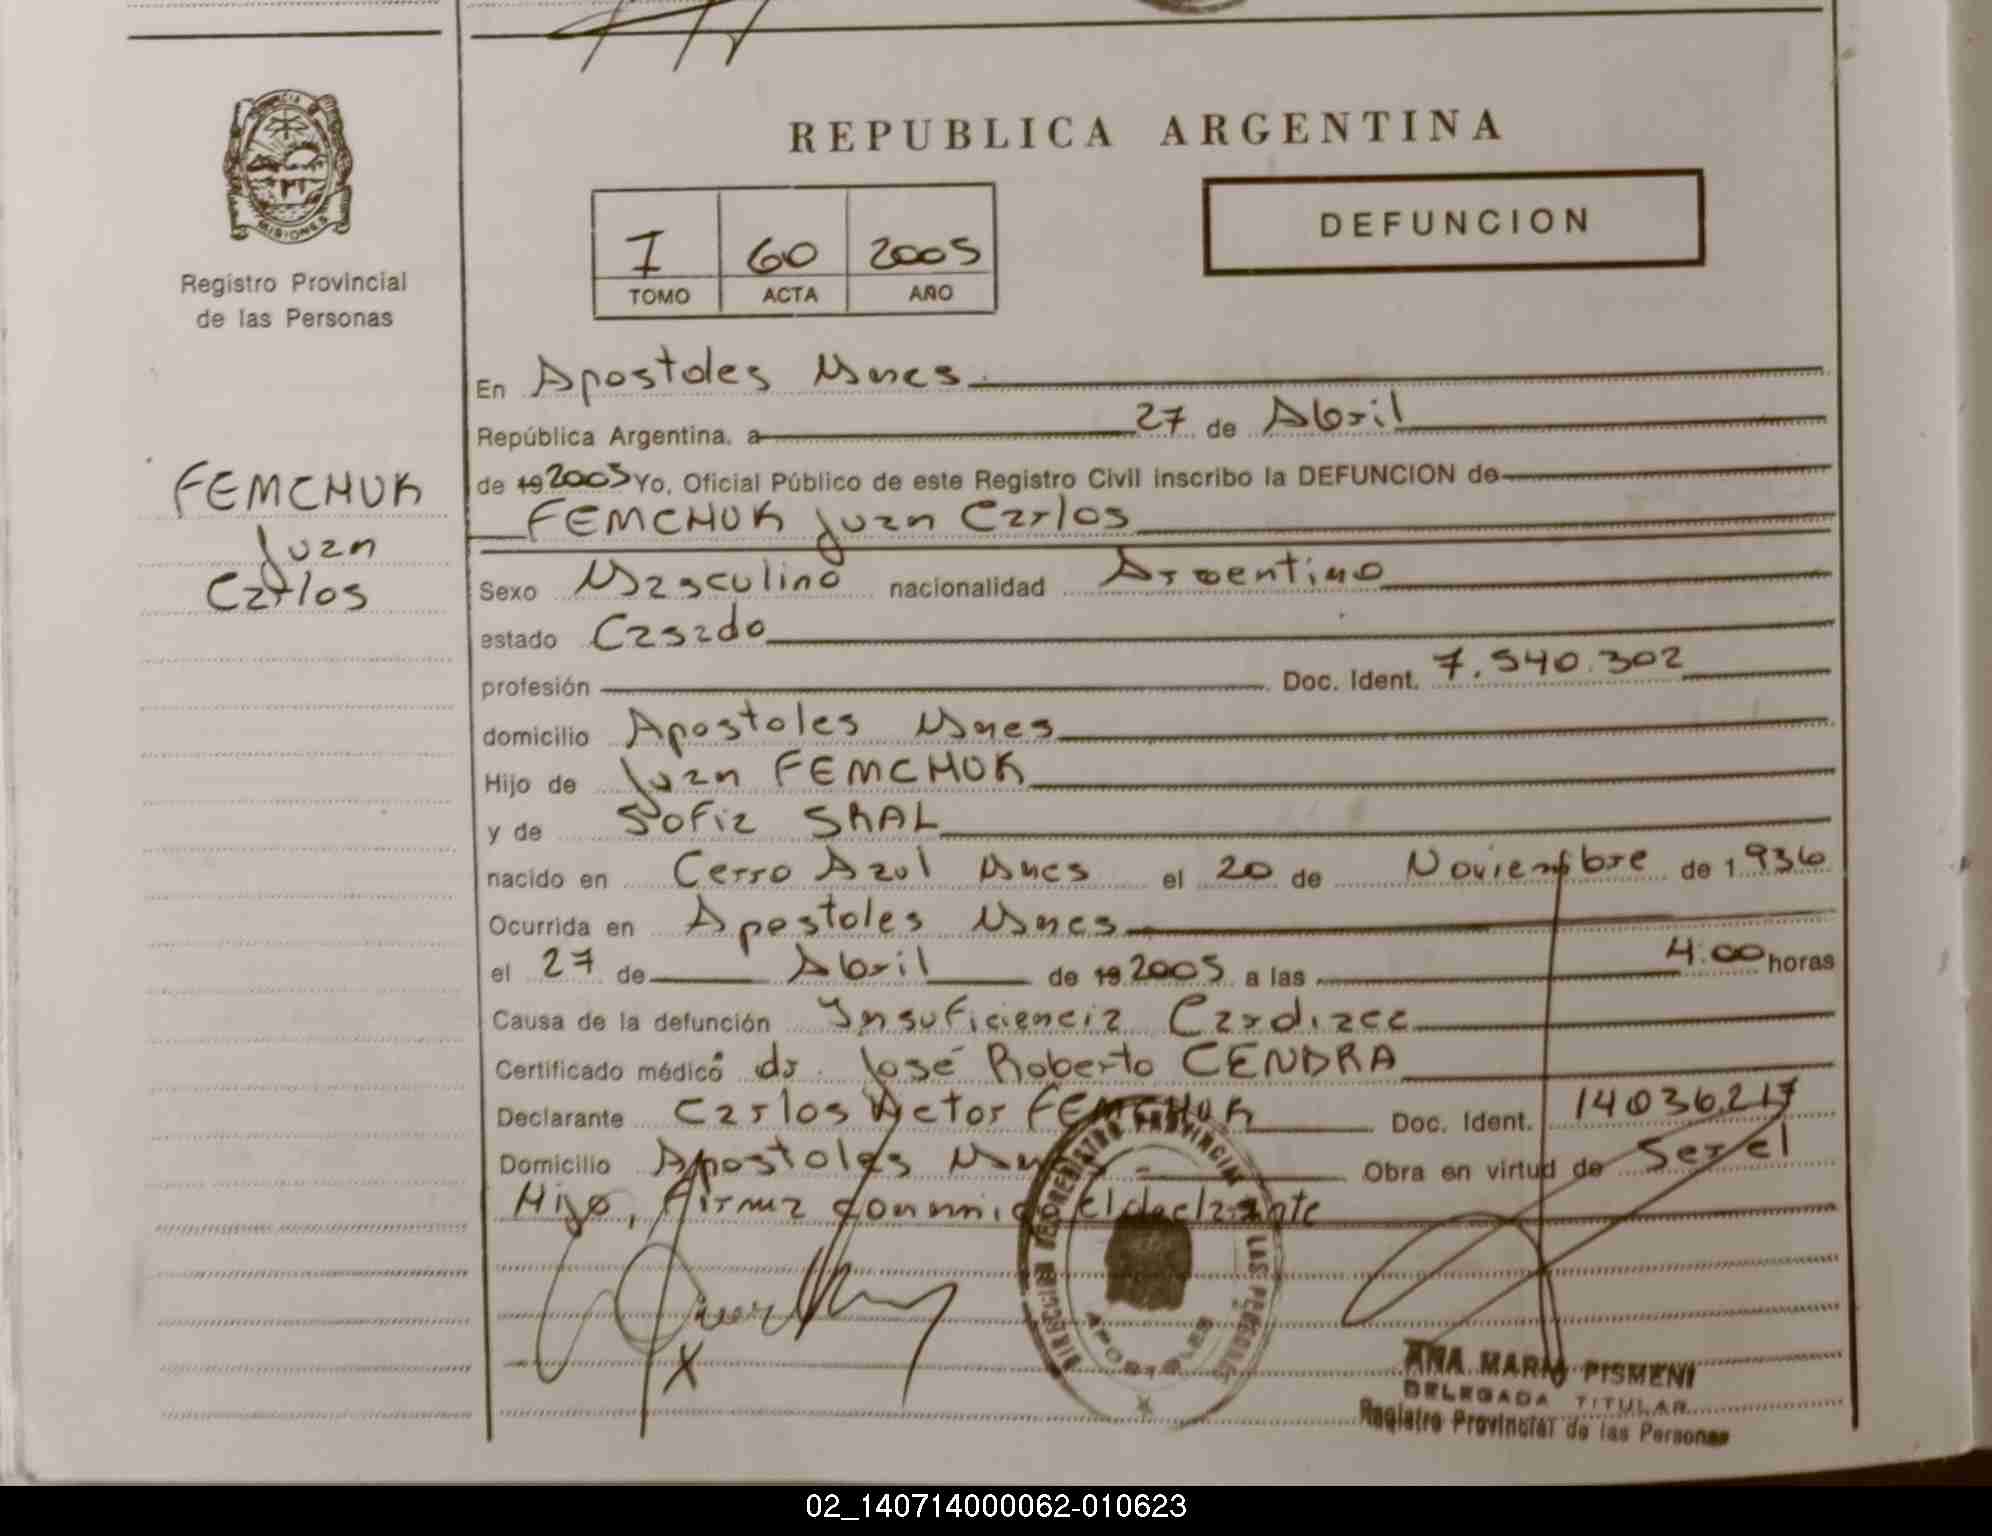 REPUBLICA ARGENTINA
DEFUNCION
I 60 2005
TOMO ACTA AÑO
MISIONES
Registro Provincial
de las Personas
FEMCHUK
Juan
Carlos
En Apostoles Mnes
República Argentina, a 27 de Abril
de 19 2005 Yo, Oficial Público de este Registro Civil inscribo la DEFUNCION de
FEMCHUK Juan Carlos
Sexo Masculino nacionalidad Argentino
estado Casado
profesión Doc. Ident. 7.540.302
domicilio Apostoles Mnes
Hijo de Juan FEMCHUK
y de Sofia SKAL
nacido en Cerro Azul Mnes el 20 de Noviembre de 1936
Ocurrida en Apostoles Mnes
el 27 de Abril de 19 2005 a las 4:00 horas
Causa de la defunción Insuficiencia Cardiaca
Certificado médico dr. José Roberto CENDRA
Declarante Carlos Victor FEMCHUK Doc. Ident. 14036.217
Domicilio Apostoles Mnes Obra en virtud de Ser el
Hijo, firma conmigo el declarante
X
APOSTOLES
ANA MARIA PISMENI
DELEGADA TITULAR
Registro Provincial de las Personas
02_140714000062-010623